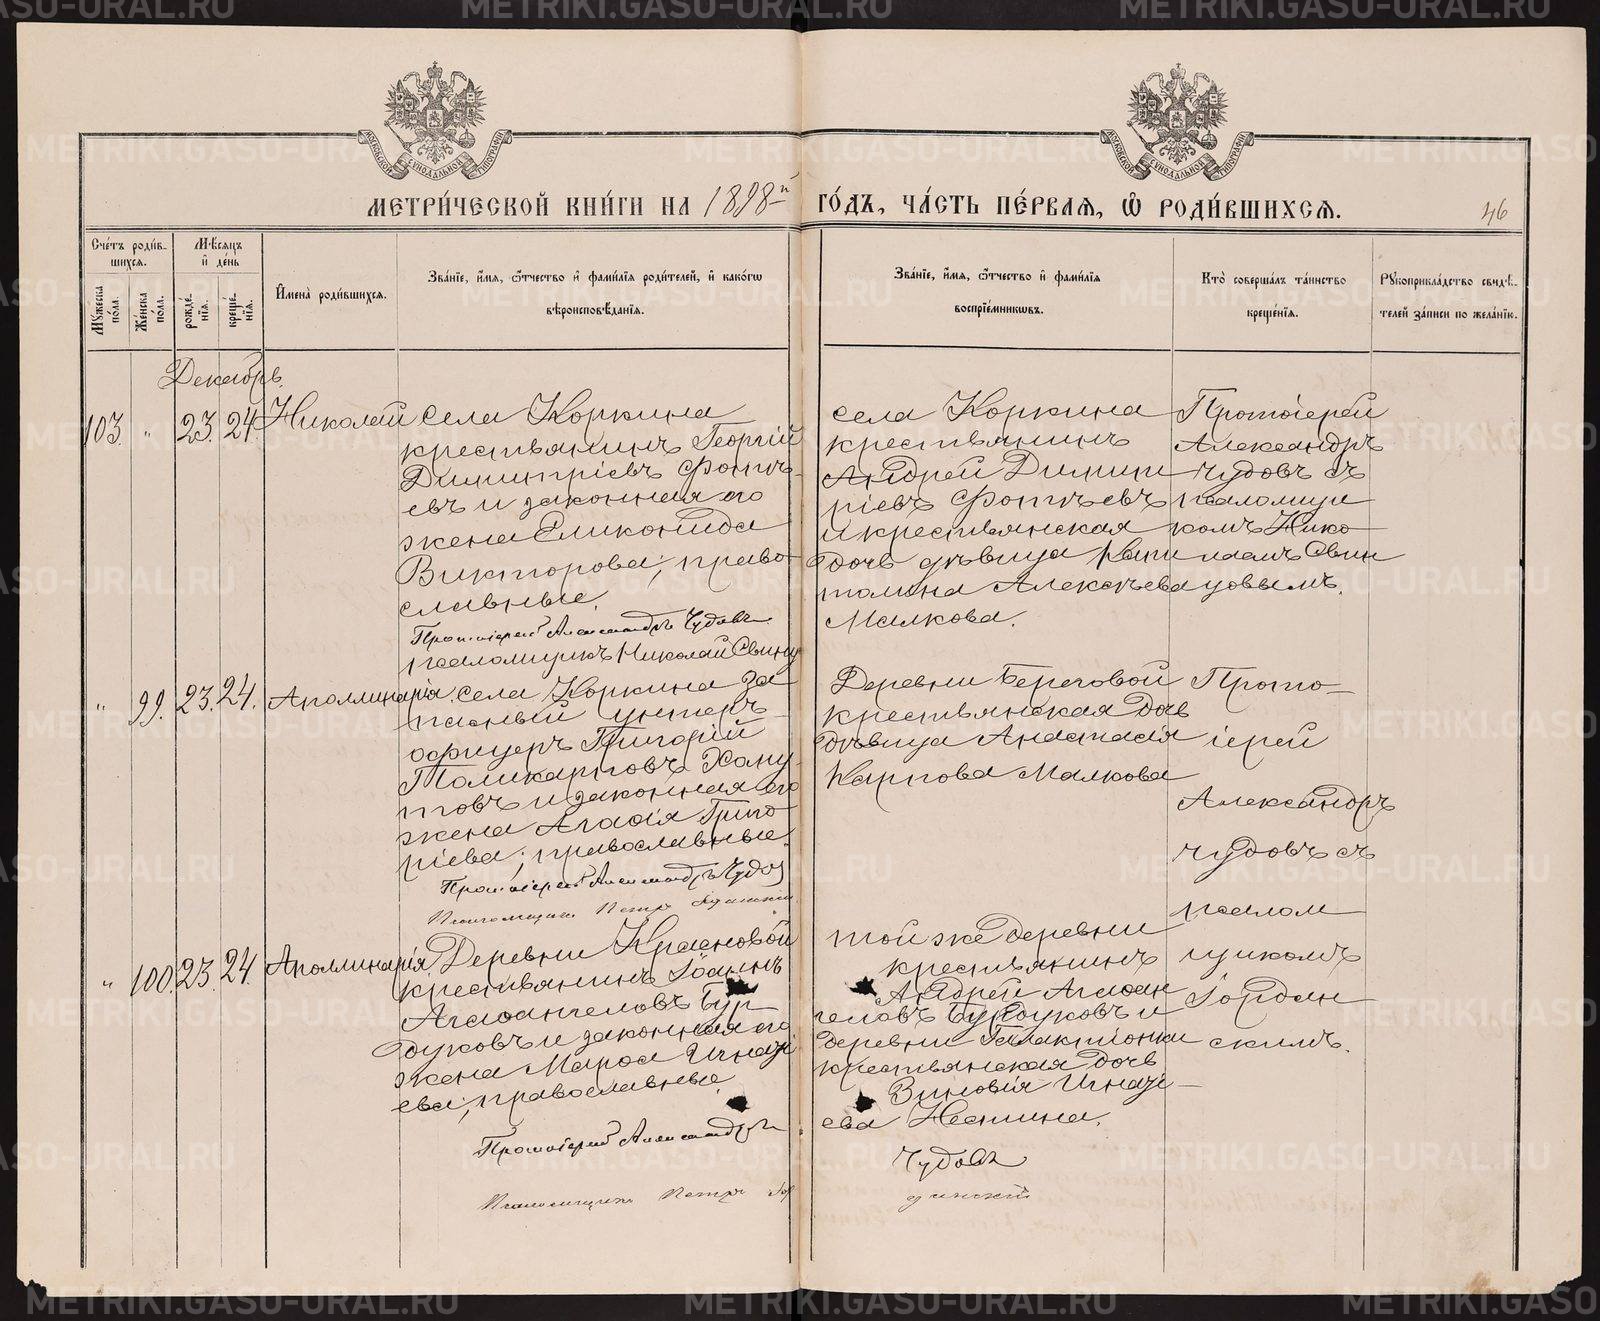 МЕТРИ́ЧЕСКОЙ КНИ́ГИ НА 1898й ГО́ДЪ, ЧА́СТЬ ПЕ́РВАѦ, Ѡ҆ РОДИ́ВШИХСѦ.
46
Сче́тъ роди́в-
шихсѧ.
Мꙋ́жеска по́ла.
Же́нска по́ла.
Мѣ́сѧцъ и҆ де́нь
рожде́нїѧ.
креще́нїѧ.
И҆мена̀ роди́вшихсѧ.
Зва́нїе, и҆́мѧ, ѻ҆́тчество и҆ фами́лїѧ роди́телей, и҆ како́гѡ
вѣроисповѣ́данїѧ.
Зва́нїе, и҆́мѧ, ѻ҆́тчество и҆ фами́лїѧ
воспрїе́мникѡвъ.
Кто̀ соверша́лъ та́инство
креще́нїѧ.
Рꙋкоприкла́дство свидѣ́-
телей за́писи по жела́нїю.
Декабрь.
103. „ 23. 24. Николай
села Коркина
крестьянинъ Георгій
Димитріевъ Фотѣ-
евъ и законная его
жена Еликонида
Викторова; право-
славные.
Протоіерей Александръ Чудовъ
псаломщикъ Николай Свинц
села Коркина
крестьянинъ
Андрей Димит
ріевъ Фотѣевъ
и крестьянская
дочь дѣвица Капи
толина Алексѣева
Малкова.
Протоіерей
Александръ
Чудовъ съ
псаломщи
комъ Нико
лаемъ Свин
цовымъ.
„ 99. 23. 24. Аполлинарія.
села Коркина за
пасный унтеръ-
офицеръ Григорій
Поликарповъ Хому
товъ и законная его
жена Агафія Григо
ріева; православные.
Протоіерей Александръ Чудов
Псаломщикъ Петръ
Деревни Береговой
крестьянская дочь
дѣвица Анастасія
Карпова Малкова
Прото-
іерей
Александръ
Чудовъ съ
псалом
щикомъ
Іордан
скимъ.
„ 100. 23. 24. Аполлинарія.
Деревни Красновой
крестьянинъ Іоаннъ
Агафангеловъ Бур
дуковъ и законная его
жена Марфа Игнаті
ева; православные.
Протоіерей Александръ
Псаломщикъ Петръ Іор
той же деревни
крестьянинъ
Андрей Агафан
геловъ Бурдуковъ и
деревни Галактіонки
крестьянская дочь
Зиновія Игнаті-
ева
Чудовъ
данскій
METRIKI.GASO-URAL.RU